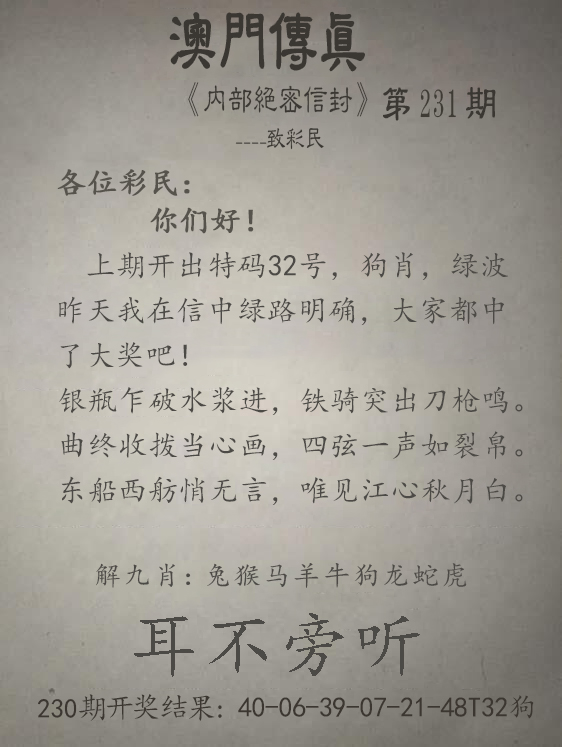 澳門傳眞
《内部絕密信封》第231期
----致彩民
各位彩民：
你们好！
上期开出特码32号，狗肖，绿波
昨天我在信中绿路明确，大家都中
了大奖吧！
银瓶乍破水浆迸，铁骑突出刀枪鸣。
曲终收拨当心画，四弦一声如裂帛。
东船西舫悄无言，唯见江心秋月白。
解九肖：兔猴马羊牛狗龙蛇虎
耳不旁听
230期开奖结果：40-06-39-07-21-48T32狗